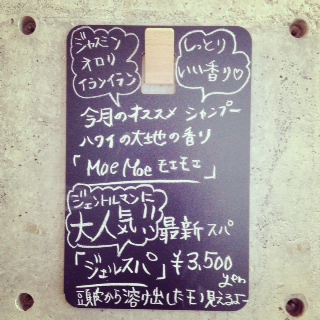 ジャスミン
オロリ
イランイラン
しっとり
いい香り♡
今月のオススメ シャンプー
ハワイの大地の香り
「MoeMoe モエモエ」
ジェントルマンに
大人気!!!
最新スパ
「ジェルスパ」¥3,500
yen
頭皮から溶け出したモノ見えるよー